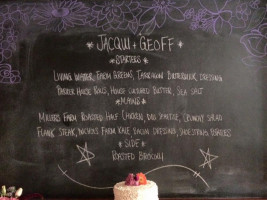 JACQUI + GEOFF
* STARTERS *
LIVING WATER FARM GREENS, TARRAGON BUTTERMILK DRESSING
PARKER HOUSE ROLLS, HOUSE CULTURED BUTTER, SEA SALT
* MAINS *
MILLERS FARM ROASTED HALF CHICKEN, CRUNCHY
FLANK STEAK, FARM KALE, DRESSING, SHOESTRING POTATOES
* SIDE *
ROASTED BROCCOLI